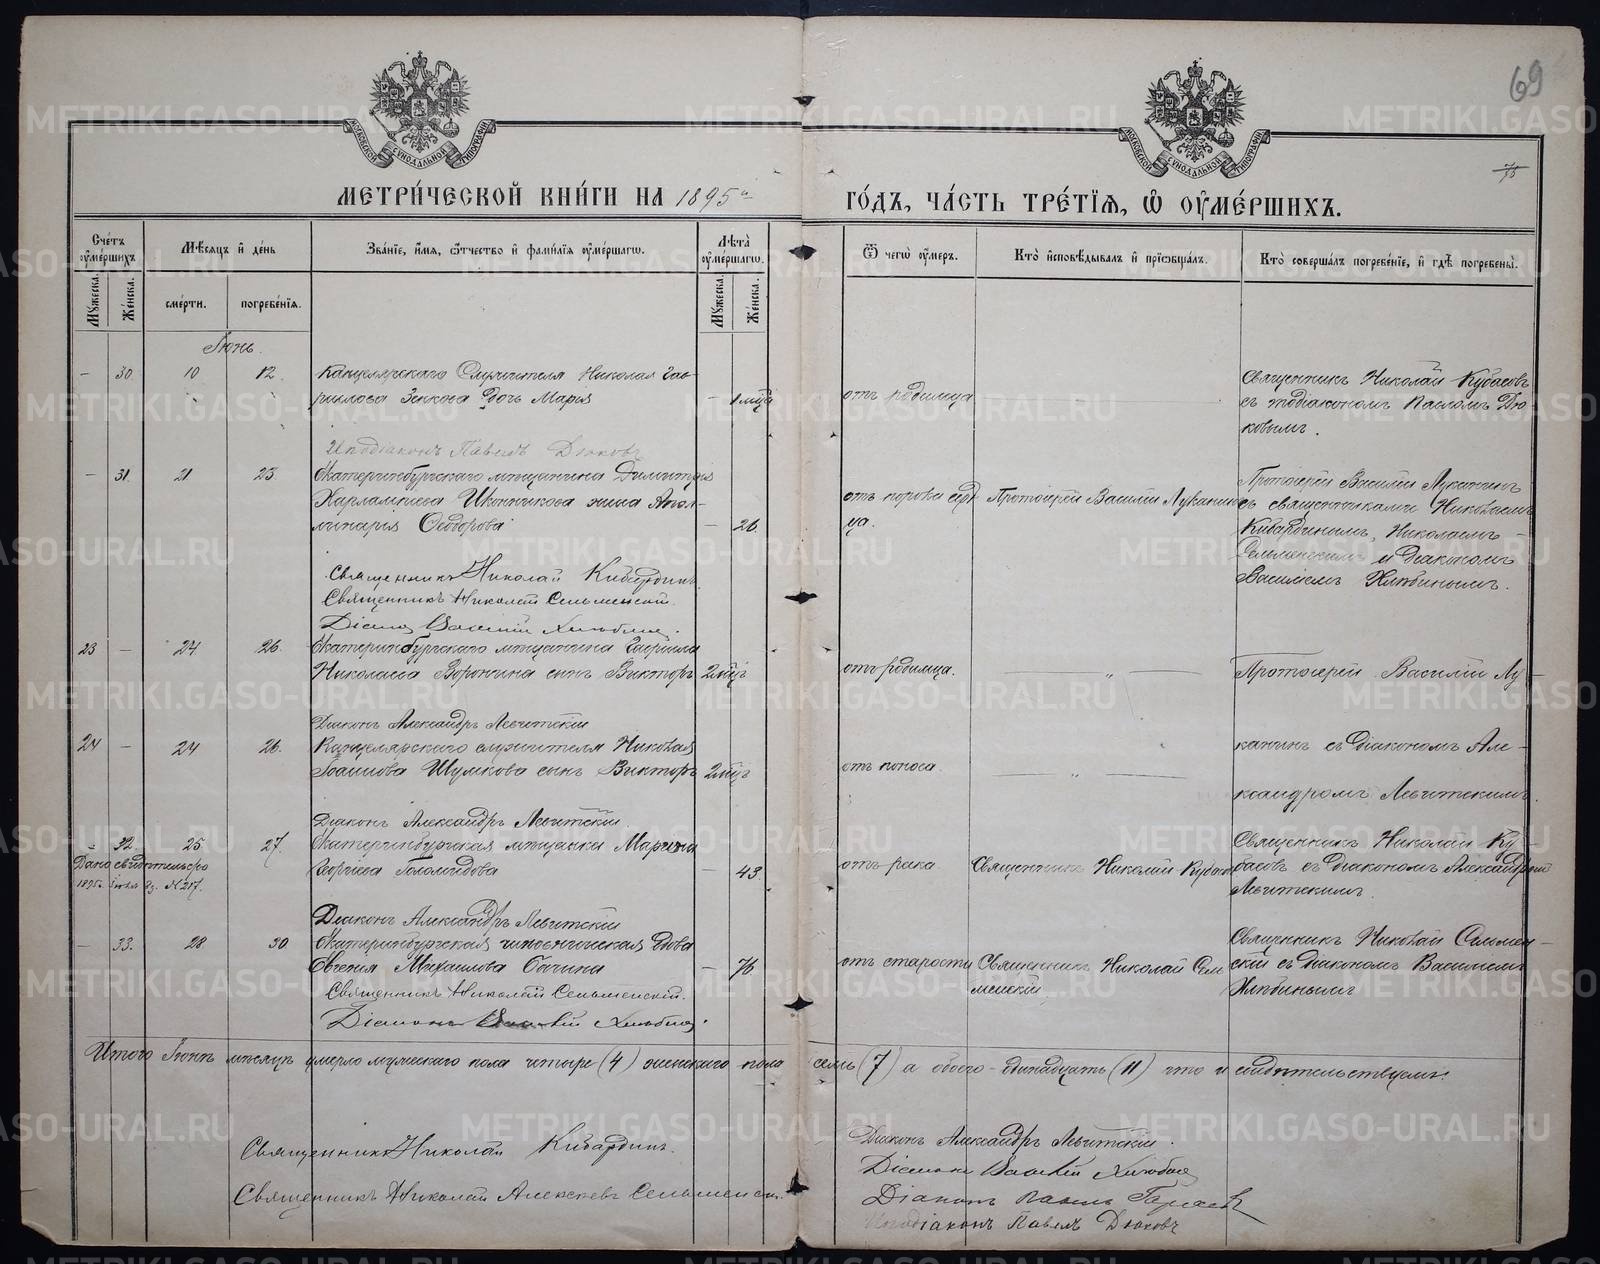 69
75
МОСКОВСКОЙ СѴНОДАЛЬНОЙ ТИПОГРАФІИ
МОСКОВСКОЙ СѴНОДАЛЬНОЙ ТИПОГРАФІИ
МЕТРИ́ЧЕСКОЙ КНИ́ГИ НА 1895й ГО́ДЪ, ЧА́СТЬ ТРЕ́ТІѦ, Ѽ ОУМЕ́РШИХЪ.
Сче́тъ оуме́ршихъ
Мѣ́сѧцъ и҆ де́нь
Зва́ніе, и҆́мѧ, ѻ҆́тчество и҆ фами́лїѧ оуме́ршагѡ.
Лѣ́та оуме́ршагѡ.
Ѿ чегѡ̀ оу́меръ.
Кто̀ и҆сповѣ́дывалъ и҆ прїѡбща́лъ.
Кто̀ соверша́лъ погребе́нїе, и҆ гдѣ̀ погребены̀.
Мꙋжеска.
Же́нска.
сме́рти.
погребе́нїѧ.
Мꙋжеска.
Же́нска.
Іюнь.
– 30. 10 12. Канцелярскаго Служителя Николая Гав-
рилова Зенкова дочь Марія – 1 мѣся
отъ родимца
Священникъ Николай Кубасовъ
съ иподіакономъ Павломъ Дю
ковымъ.
Иподіаконъ Павелъ Дюковъ
– 31. 21 23. Екатеринбургскаго мѣщанина Димитрія
Харлампіева Иконникова жена Апол-
линарія Ѳеодорова – 26.
отъ порока серд
ца.
Протоіерей Василій Луканинъ
Протоіерей Василій Луканинъ
съ священниками Николаемъ
Кибардинымъ, Николаемъ
Сельменскимъ и діакономъ
Василіемъ Хлѣбинымъ.
Священникъ Николай Кибардинъ
Священникъ Николай Сельменскій.
Діаконъ Василій Хлѣбинъ.
23 – 24 26. Екатеринбургскаго мѣщанина Гавріила
Николаева Воронина сынъ Викторъ 2 мѣц
отъ родимца.
„
Протоіерей Василій Лу-
Діаконъ Александръ Левитскій
24 – 24 26. Канцелярскаго служителя Николая
Іоаннова Шумкова сынъ Викторъ 2 мѣц
отъ поноса.
„
канинъ съ діакономъ Але-
ксандромъ Левитскимъ.
Діаконъ Александръ Левитскій.
– 32. 25 27. Екатеринбургская мѣщанка Марина
Дано свидѣтельство
1895 г. Іюля 27. N 217.
Георгіева Голомидова – 43
отъ рака.
Священникъ Николай Кубасов
Священникъ Николай Ку-
басовъ съ діакономъ Александромъ
Левитскимъ.
Діаконъ Александръ Левитскій
– 33. 28 30. Екатеринбургская чиновничья вдова
Евгенія Михаилова Бачина – 76
отъ старости
Священникъ Николай Сель
менскій
Священникъ Николай Сельмен-
скій съ діакономъ Василіемъ
Хлѣбинымъ
Священникъ Николай Сельменскій.
Діаконъ Василій Хлѣбинъ.
Итого Іюнѣ мѣсяцѣ умерло мужескаго пола четыре (4) женскаго пола семь (7) а обоего – одинадцать (11) что и свидѣтельствуемъ:
Священникъ Николай Кибардинъ.
Священникъ Николай Алексѣев Сельменскій.
Діаконъ Александръ Левитскій.
Діаконъ Василій Хлѣбинъ
Діаконъ Павелъ
Иподіаконъ Павелъ Дюковъ
METRIKI.GASO-URAL.RU